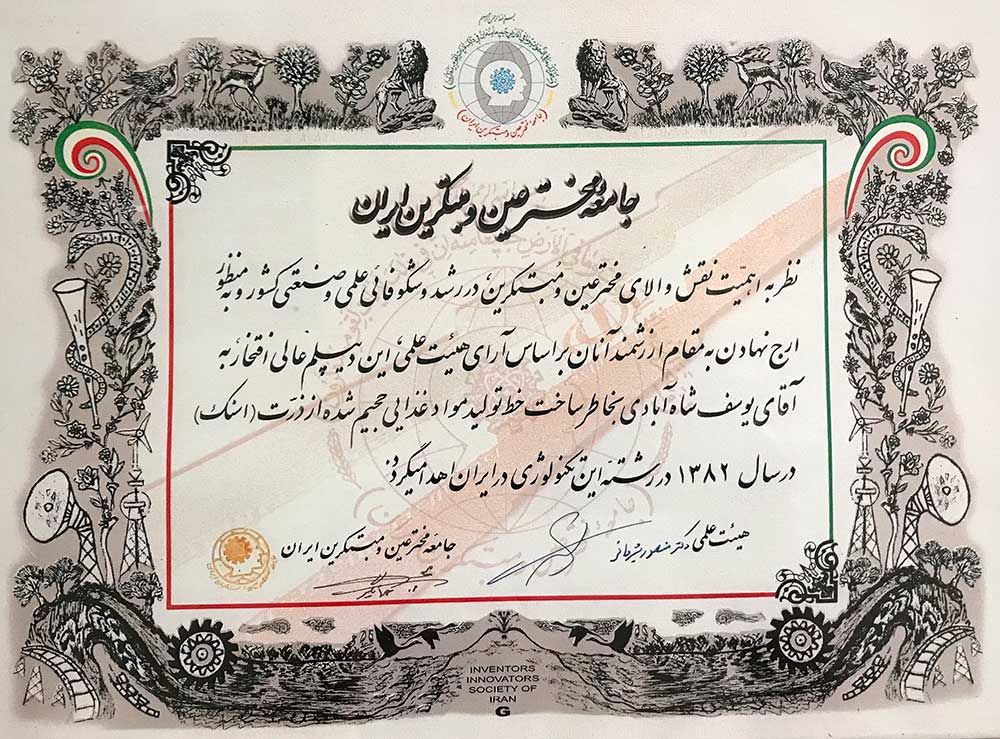 بسم الله الرحمن الرحیم
(جامعه مخترعین و مبتکرین ایران)
جامعه مخترعین و مبتکرین ایران
نظر به اهمیّت نقش والای مخترعین و مبتکرین، در رشد و شکوفائی علمی و صنعتی کشور و به منظور
ارج نهادن به مقام ارزشمند آنان بر اساس آرای هیئت علمی، این دیپلم عالی افتخار به
آقای یوسف شاه آبادی بخاطر ساخت خط تولید مواد غذایی حجیم شده از ذرّت (اسنک)
در سال ۱۳۸۲ در رشته این تکنولوژی در ایران اهدا میگردد
هیئت علمی دکتر منصور
جامعه مخترعین و مبتکرین ایران
INVENTORS
INNOVATORS
SOCIETY OF
IRAN
G